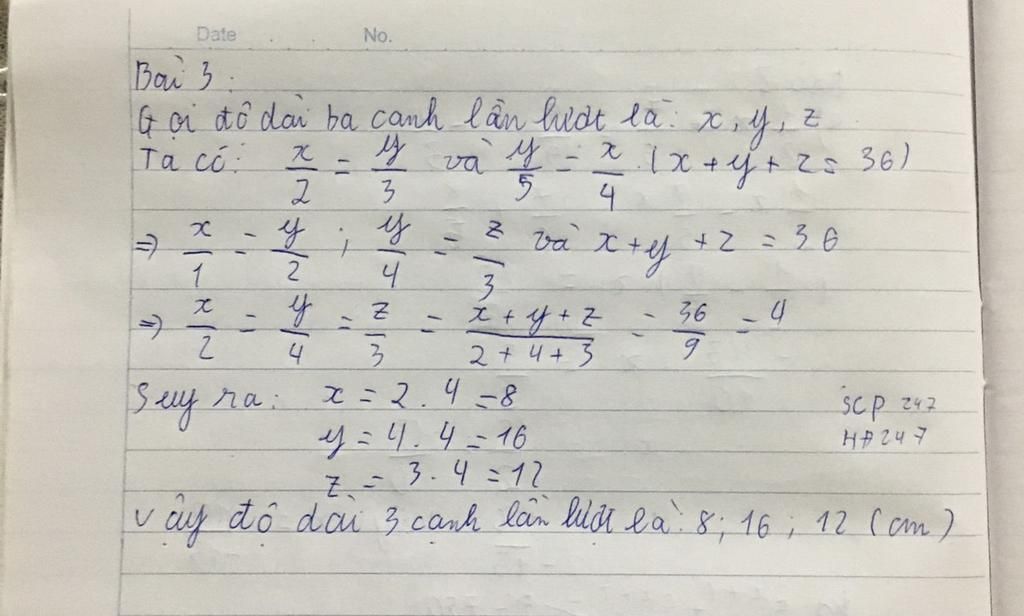 Date . . No.
Bài 3:
Gọi độ dài ba cạnh lần lượt là: x, y, z
Ta có: x/2 = y/3 và y/5 = x/4 (x + y + z = 36)
⇒ x/1 = y/2 ; y/4 = z/3 và x + y + z = 36
⇒ x/2 = y/4 = z/3 = (x + y + z)/(2 + 4 + 3) = 36/9 = 4
Suy ra: x = 2 . 4 = 8
y = 4 . 4 = 16
z = 3 . 4 = 12
Vậy độ dài 3 cạnh lần lượt là: 8; 16; 12 (cm)
SCP 247
HP247